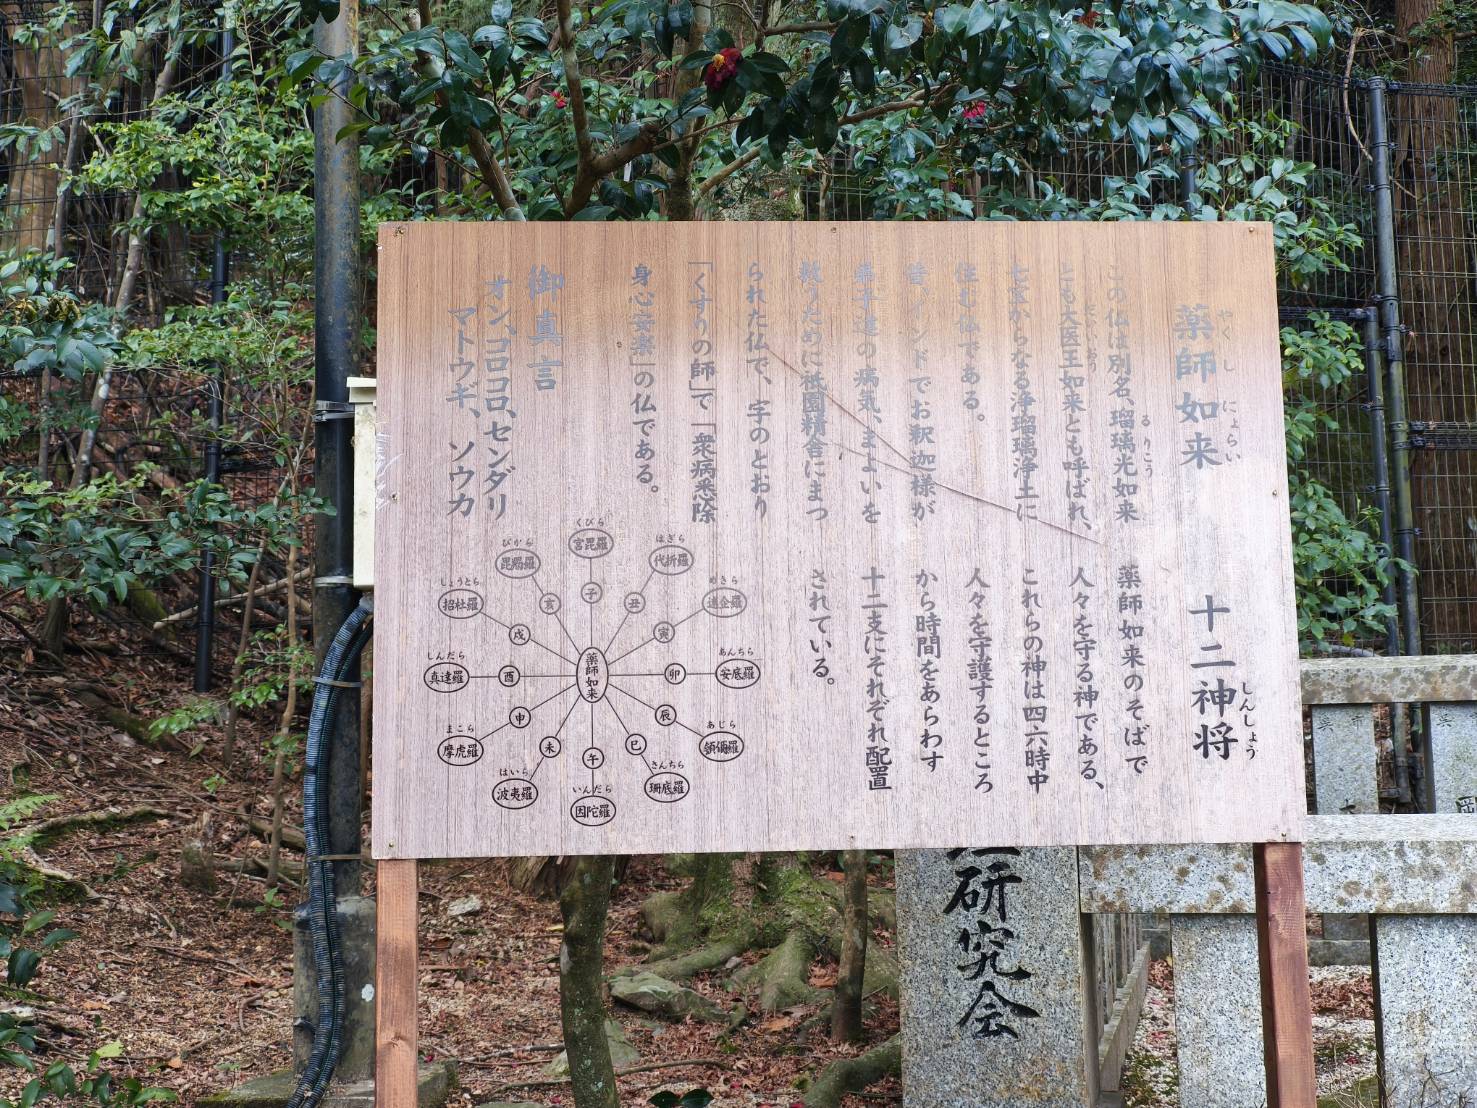 薬師如来
やくし にょらい
この仏は別名、瑠璃光如来
るりこう
とも大医王如来とも呼ばれ、
だいいおう
七宝からなる浄瑠璃浄土に
住む仏である。
昔、インドでお釈迦様が
弟子達の病気、まよいを
救うために祇園精舎にまつ
られた仏で、字のとおり
「くすりの師」で「衆病悉除
身心安楽」の仏である。
御真言
オン、コロコロ、センダリ
マトウギ、ソワカ
十二神将
しんしょう
薬師如来のそばで
人々を守る神である、
これらの神は四六時中
人々を守護するところ
から時間をあらわす
十二支にそれぞれ配置
されている。
薬師如来
子
くびら
宮毘羅
丑
はぎら
代折羅
寅
めきら
迷企羅
卯
あんちら
安底羅
辰
あじら
頞儞羅
巳
さんちら
珊底羅
午
いんだら
因陀羅
未
はいら
波夷羅
申
まこら
摩虎羅
酉
しんだら
真達羅
戌
しょうとら
招杜羅
亥
びから
毘羯羅
研究会